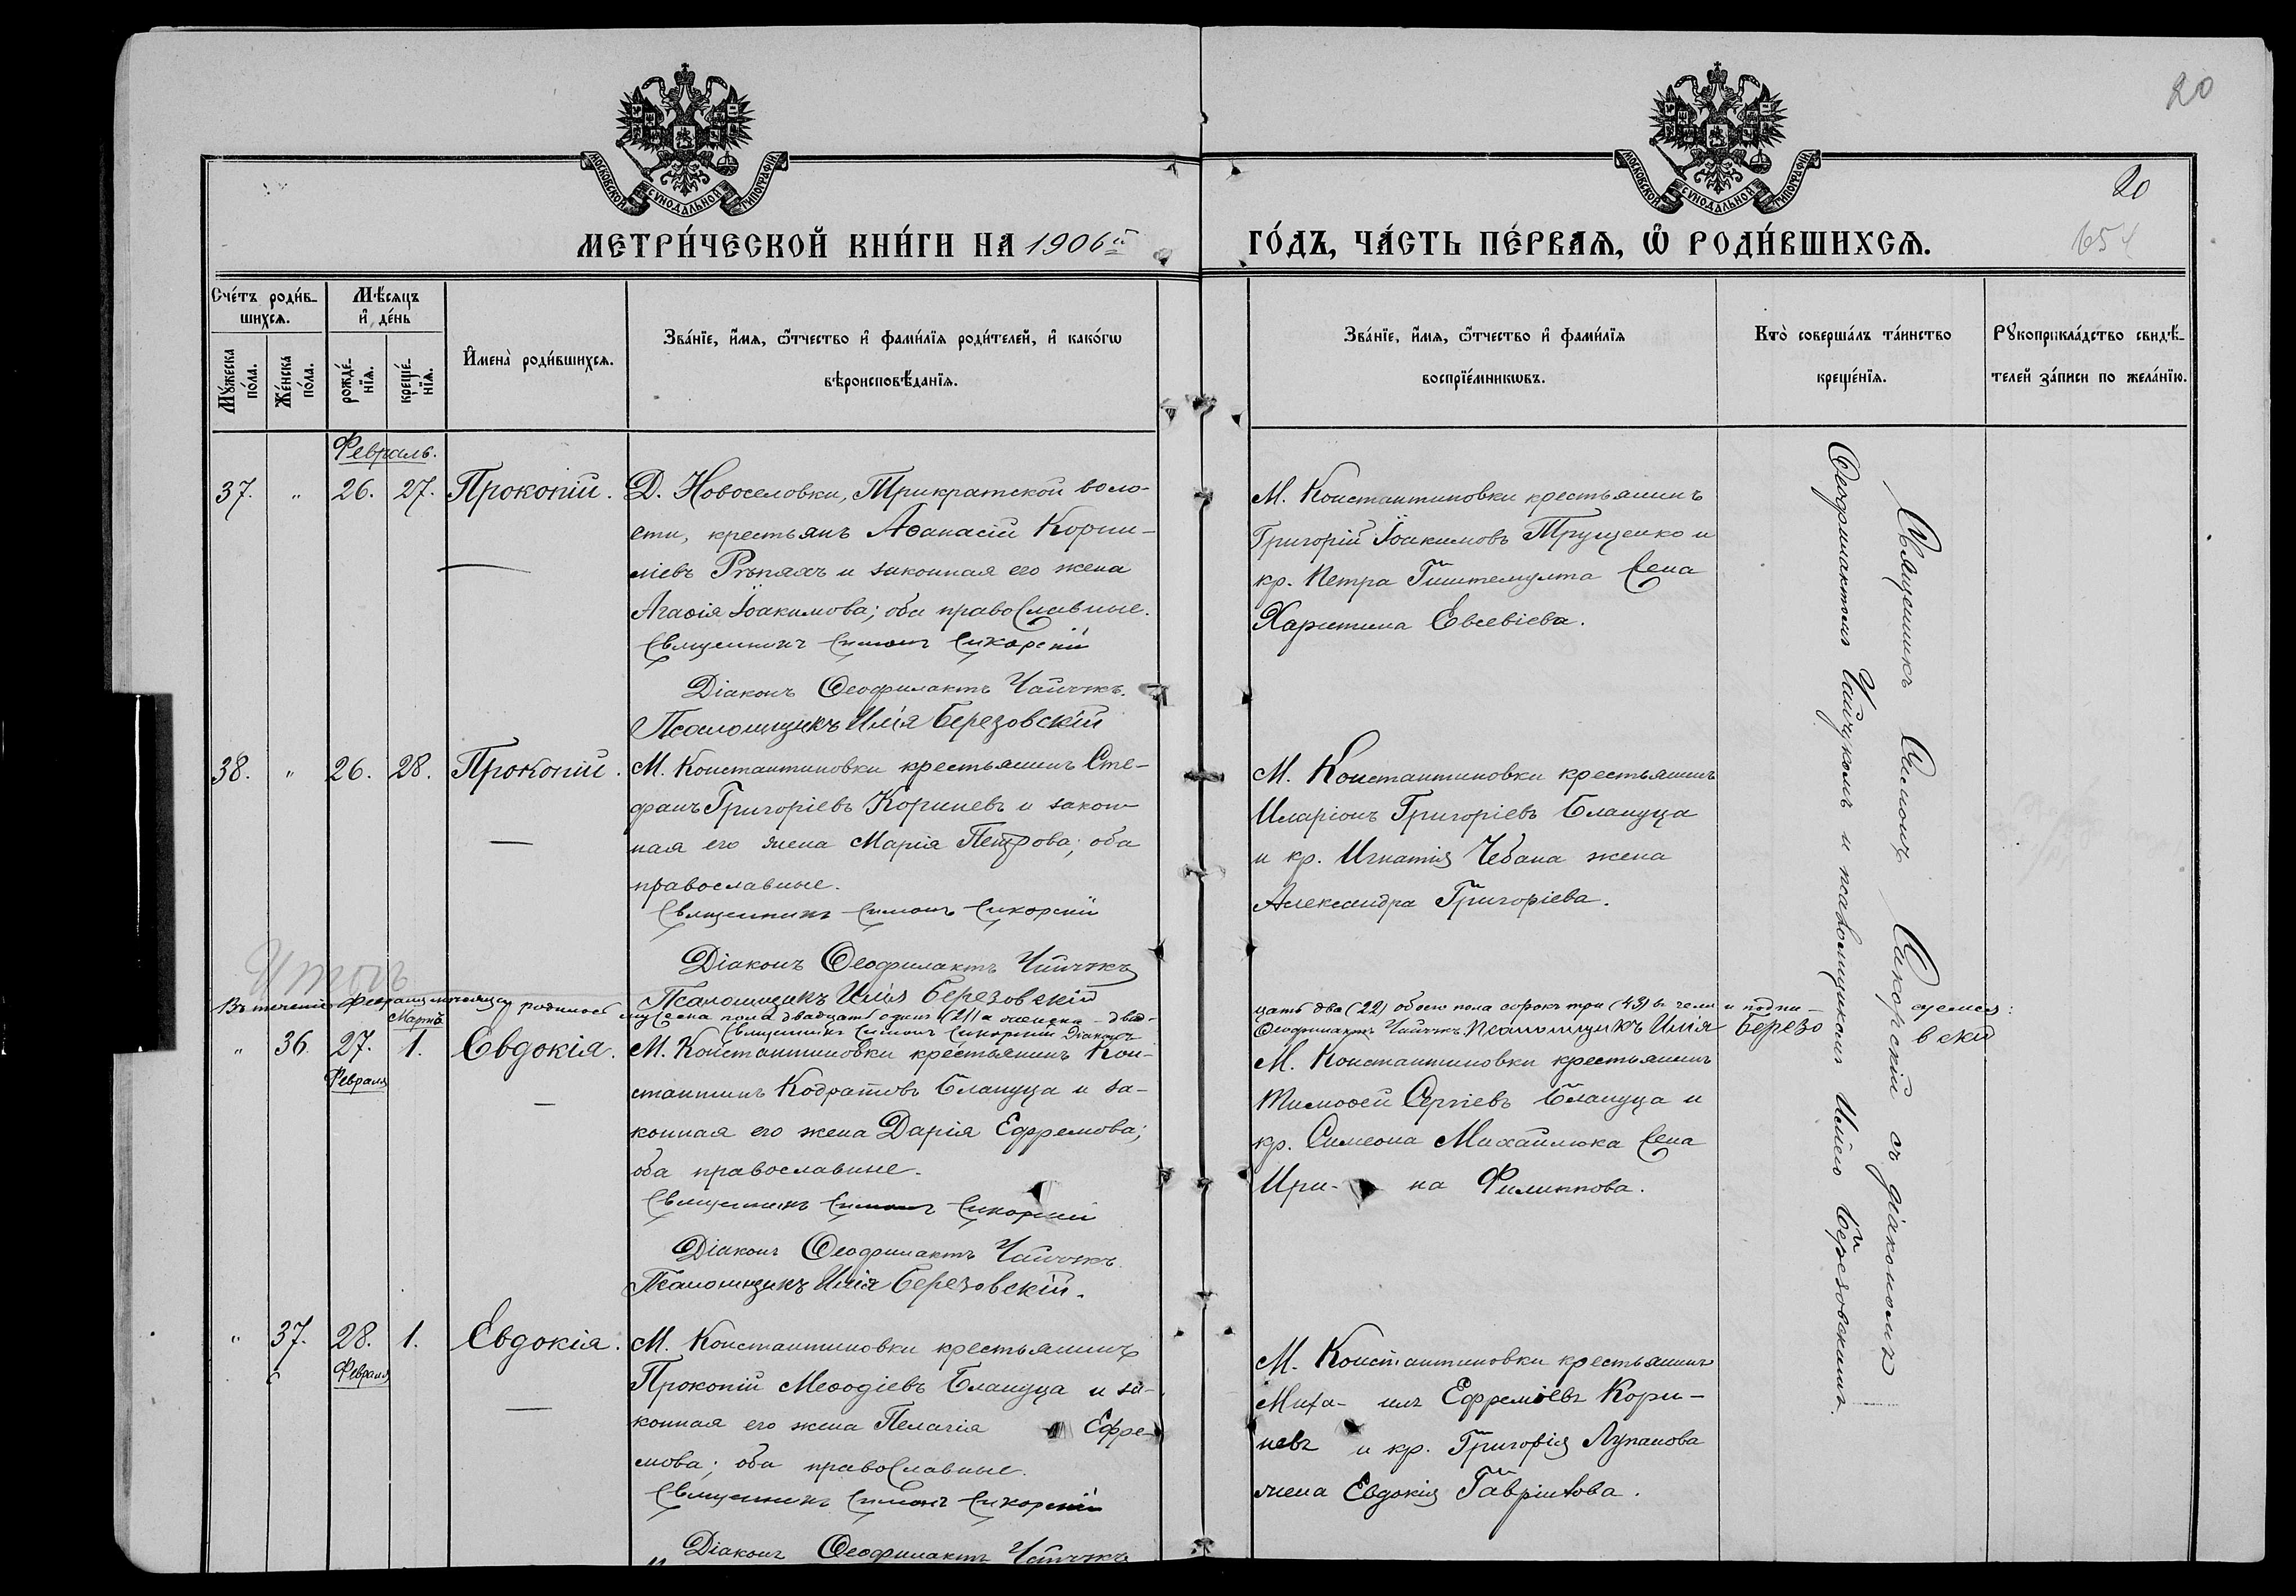 20
МОСКОВСКОЙ СѴНОДАЛЬНОЙ ТИПОГРАФІИ
МОСКОВСКОЙ СѴНОДАЛЬНОЙ ТИПОГРАФІИ
20
654
МЕТРИ́ЧЕСКОЙ КНИ́ГИ НА 1906й
ГО́ДЪ, ЧА́СТЬ ПЕ́РВАЯ, Ѿ РОДИ́ВШИХСЯ.
Сче́тъ роди́в-
шихся.
Мѣ́сяцъ
и де́нь
Мꙋ́жеска
по́ла.
Же́нска
по́ла.
рожде́-
нїя.
креще́-
нїя.
Имена̀ роди́вшихся.
Зва́нїе, и́мя, ѻ́тчество и фами́лїя роди́телей, и како́гѡ
вѣроисповѣ́данїя.
Зва́нїе, и́мя, ѻ́тчество и фами́лїя
воспрїе́мникѡвъ.
Кто̀ соверша́лъ та́инство
креще́нїя.
Рꙋкоприкла́дство свидѣ́-
телей за́писи по жела́нїю.
Февраль.
37. „ 26. 27. Прокопій.
Д. Новоселовки, Трикратской воло-
сти, крестьянъ Аѳанасій Корни-
ліевъ Рѣпяхъ и законная его жена
Агаѳія Іоакимова; оба православные.
Священникъ Симонъ Сикорскій
Діаконъ Ѳеофилактъ Чайчукъ.
Псаломщикъ Илія Березовскій
М. Константиновки крестьянинъ
Григорій Іоакимовъ Трущенко и
кр. Петра жена
Харитина Евсевіева.
38. „ 26. 28. Прокопій.
М. Константиновки крестьянинъ Сте-
фанъ Григоріевъ Кориневъ и закон-
ная его жена Марія Петрова; оба
православные.
Священникъ Симонъ Сикорскій
Діаконъ Ѳеофилактъ Чайчукъ
Псаломщикъ Илія Березовскій
М. Константиновки крестьянинъ
Иларіонъ Григоріевъ Блануца
и кр. Игнатія Чебана жена
Александра Григоріева.
Итогъ
Въ теченіе февраля мѣсяца родилось мужеска пола двадцать одинъ (21) а женска двад-
цать два (22) обоего пола сорокъ три (43) въ чемъ и подпи- суемся:
Священникъ Симонъ Сикорскій Діаконъ
Ѳеофилактъ Чайчукъ Псаломщикъ Илія Березо вскій
Мартъ
„ 36. 27. 1. Евдокія.
Февраля
М. Константиновки крестьянинъ Кон-
стантинъ Кодратовъ Блануца и за-
конная его жена Дарія Ефремова;
оба православные.
Священникъ Симонъ Сикорскій
Діаконъ Ѳеофилактъ Чайчукъ
Псаломщикъ Илія Березовскій.
М. Константиновки крестьянинъ
Тимоѳей Сергіевъ Блануца и
кр. Симеона Михайлюка жена
Ири- на Филиппова.
„ 37. 28. 1. Евдокія.
Февраля
М. Константиновки крестьянинъ
Прокопій Меѳодіевъ Блануца и за-
конная его жена Пелагія Ефре-
мова; оба православные.
Священникъ Симонъ Сикорскій
Діаконъ Ѳеофилактъ Чайчукъ
М. Константиновки крестьянинъ
Миха- илъ Ефреміевъ Кори-
невъ и кр. Григорія Лупанова
жена Евдокія Гавріилова.
Священникъ Симонъ Сикорскій съ діакономъ
Ѳеофилактомъ Чайчукомъ и псаломщикомъ Иліею Березовскимъ.